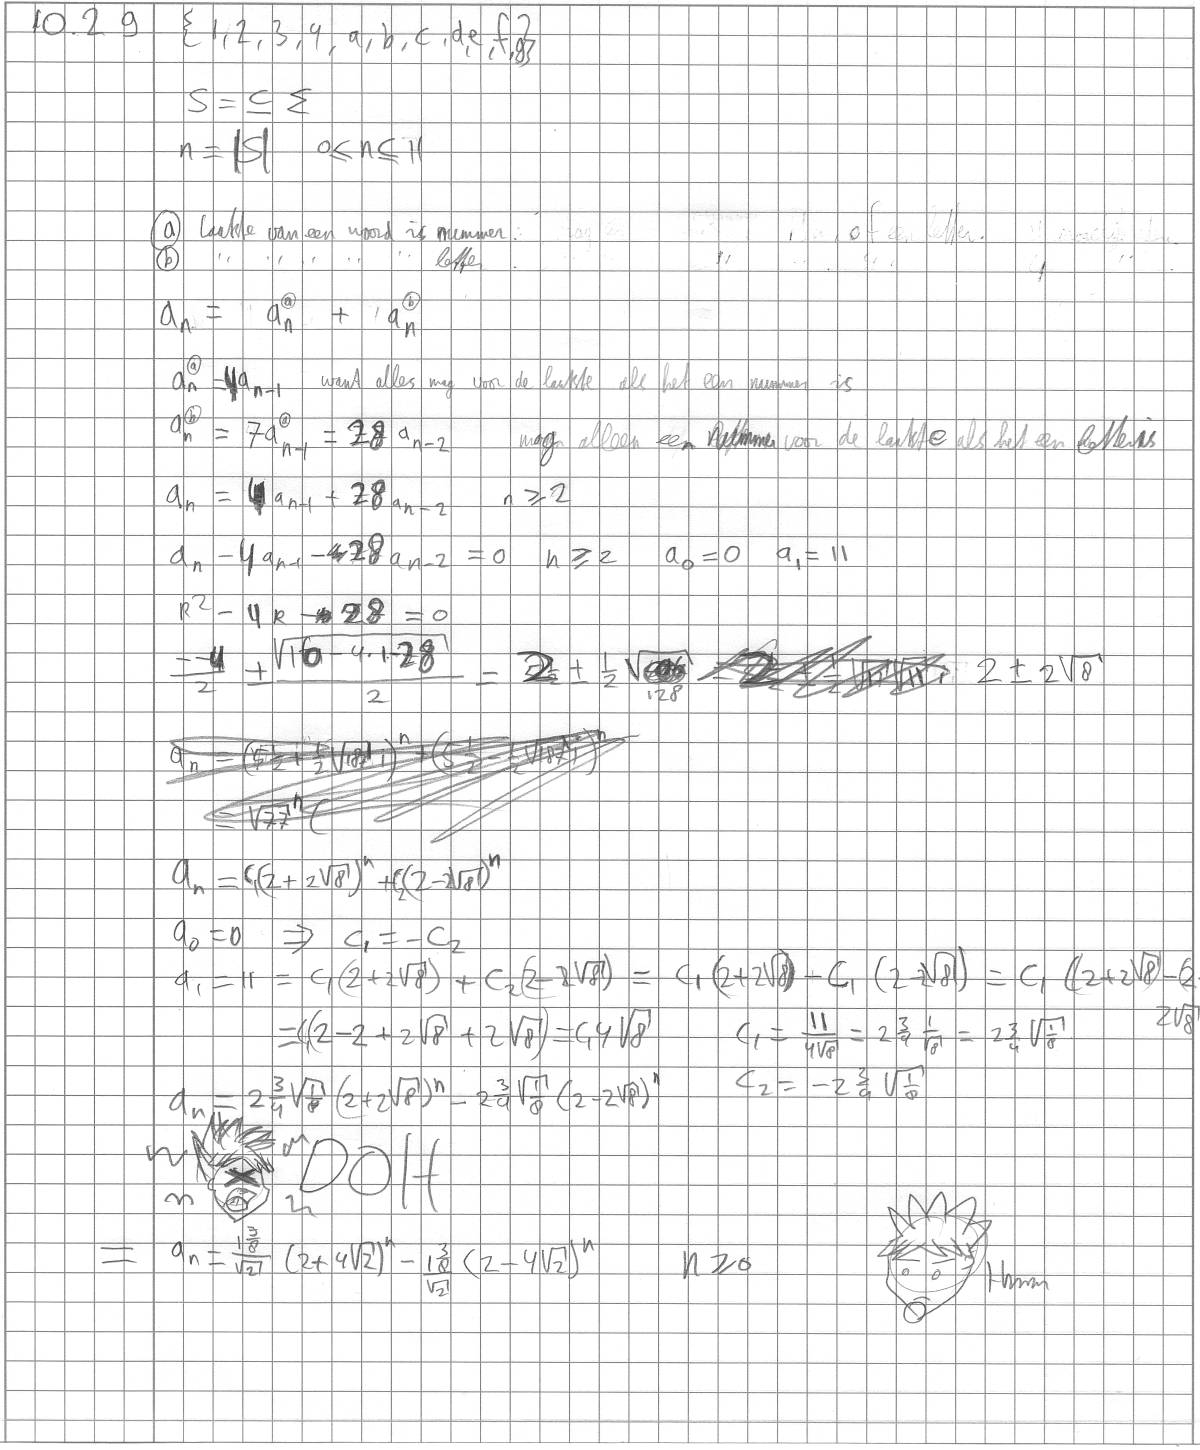 10.2 9 {1,2,3,4,a,b,c,d,e,f,g}
S = ⊆ Σ
n = |S| 0 ≤ n ≤ 11
ⓐ laatste van een woord is nummer. of een letter.
ⓑ " " " " " letter
aₙ = aₙⓐ + aₙⓑ
aₙⓐ = 4aₙ₋₁ want alles mag voor de laatste als het een nummer is
aₙⓑ = 7aⓐₙ₋₁ = 28 aₙ₋₂ mag alleen een nummer voor de laatste als het een letter is
aₙ = 4aₙ₋₁ + 28aₙ₋₂ n ≥ 2
aₙ − 4aₙ₋₁ − 28aₙ₋₂ = 0 n ≥ 2 a₀ = 0 a₁ = 11
R² − 4R − 28 = 0
−−4/2 ± √(16 − 4·1·28)/2 = 2 ± ½√128 2 ± 2√8
aₙ = C₁(2+2√8)ⁿ + C₂(2−2√8)ⁿ
a₀ = 0 ⇒ C₁ = −C₂
a₁ = 11 = C₁(2+2√8) + C₂(2−2√8) = C₁(2+2√8) − C₁(2−2√8) = C₁((2+2√8)−(2−
2√8
= C₁(2−2+2√8+2√8) = C₁4√8 C₁ = 11/4√8 = 2¾ 1/√8 = 2¾√⅛
C₂ = −2¾√⅛
aₙ = 2¾√⅛(2+2√8)ⁿ − 2¾√⅛(2−2√8)ⁿ
DOH
= aₙ = 1⅜/√2 (2+4√2)ⁿ − 1⅜/√2 (2−4√2)ⁿ n ≥ 0
Hmm